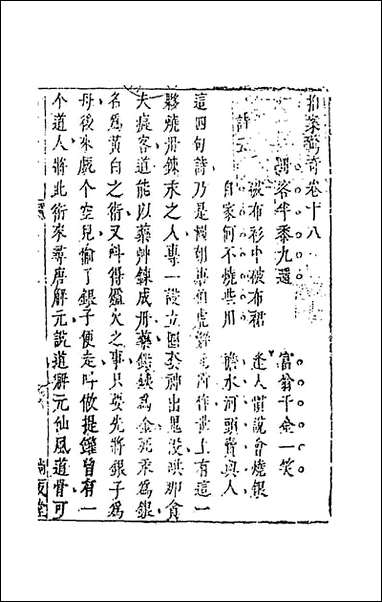 拍案驚奇卷十八
丹客半黍九還 富翁千金一笑
詩云
破布衫中破布裙 逢人慣說會燒銀
自家何不燒些用 擔水河頭賣與人
這四句詩乃是國朝唐伯虎解元所作世上有這一
夥燒丹鍊汞之人專一設立圈套神出鬼沒哄那貪
夫癡客道能以藥草鍊成丹藥鉛鐵為金死汞為銀
名為黃白之術又叫得爐火之事只要先將銀子為
母後來覷个空兒偷了銀子便走叫做提罐曾有一
个道人將此術來尋唐解元說道解元仙風道骨可
尚友堂